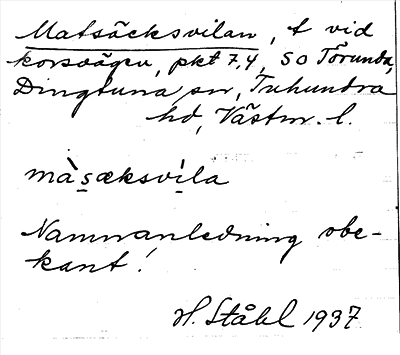 Matsäcksvilan, t vid
korsvägen, pkt 7,4, SO Törunda,
Dingtuna sn, Tuhundra
hd, Västm. l.
màsæksvila
Namnanledning obe-
kant!
H. Ståhl 1937